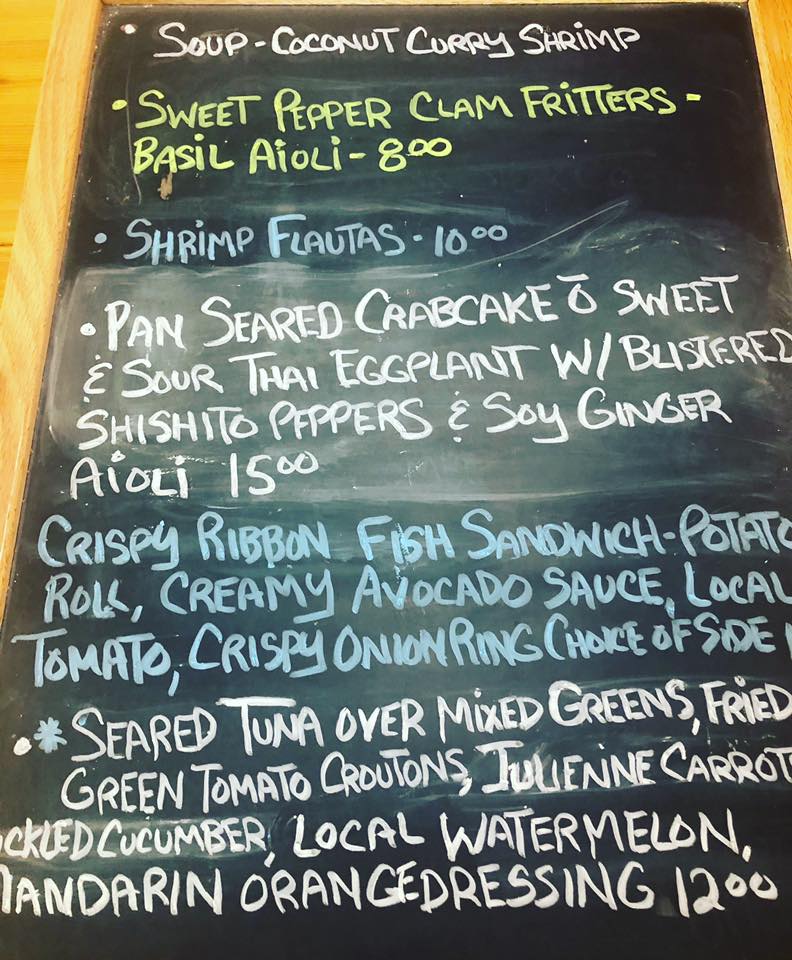 • Soup - Coconut Curry Shrimp
• Sweet Pepper Clam Fritters -
Basil Aioli - 8.00
• Shrimp Flautas - 10.00
• Pan Seared Crabcake ō Sweet
& Sour Thai Eggplant w/ Blistered
Shishito Peppers & Soy Ginger
Aioli 15.00
Crispy Ribbon Fish Sandwich - Potato
Roll, Creamy Avocado Sauce, Local
Tomato, Crispy Onion Ring Choice of Side
• * Seared Tuna over Mixed Greens, Fried
Green Tomato Croutons, Julienne Carrot
ckled Cucumber, Local Watermelon,
Mandarin Orange Dressing 12.00